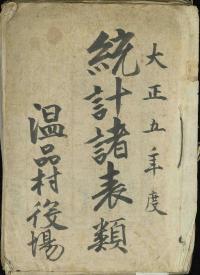 大正五年度
統計諸表類
温品村役場